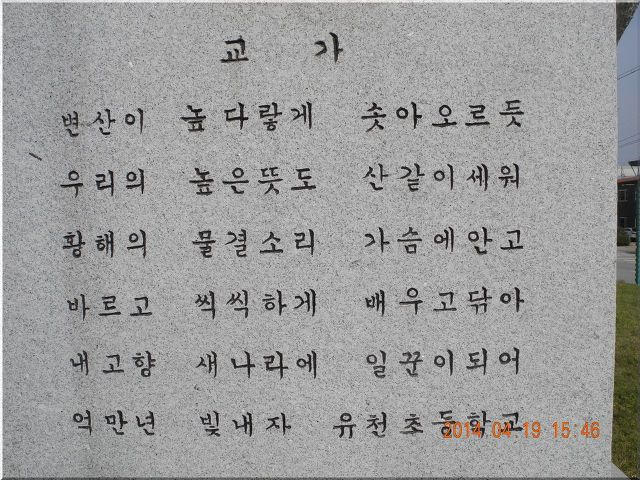 교 가
변산이 높다랗게 솟아오르듯
우리의 높은뜻도 산같이세워
황해의 물결소리 가슴에안고
바르고 씩씩하게 배우고닦아
내고향 새나라에 일꾼이되어
억만년 빛내자 유천초등학교
2014.04.19 15:46